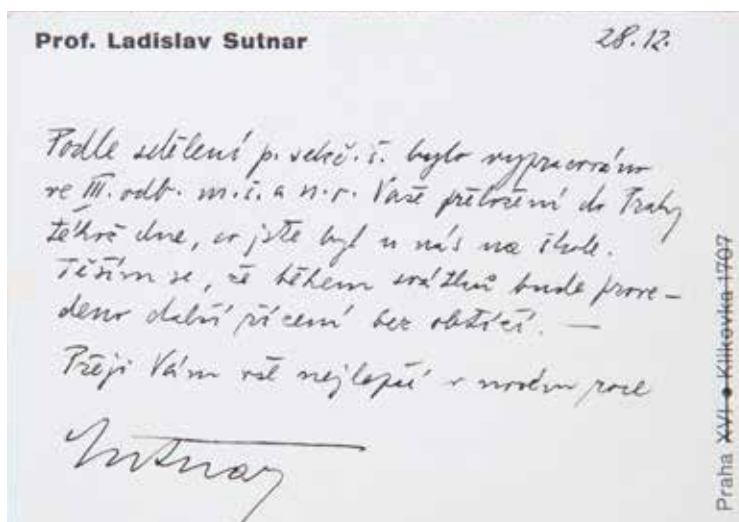 Prof. Ladislav Sutnar
28.12.
Podle sdělení p. sekč. š. bylo vypracováno
ve III. odb. m.š. a n.o. Vaše přeložení do Prahy
téhož dne, co jste byl u nás na škole.
Těším se, že během svátků bude prove-
deno další řízení bez obtíží. —
Přeji Vám vše nejlepší v novém roce
Sutnar
Praha XVI • Klikovka 1707